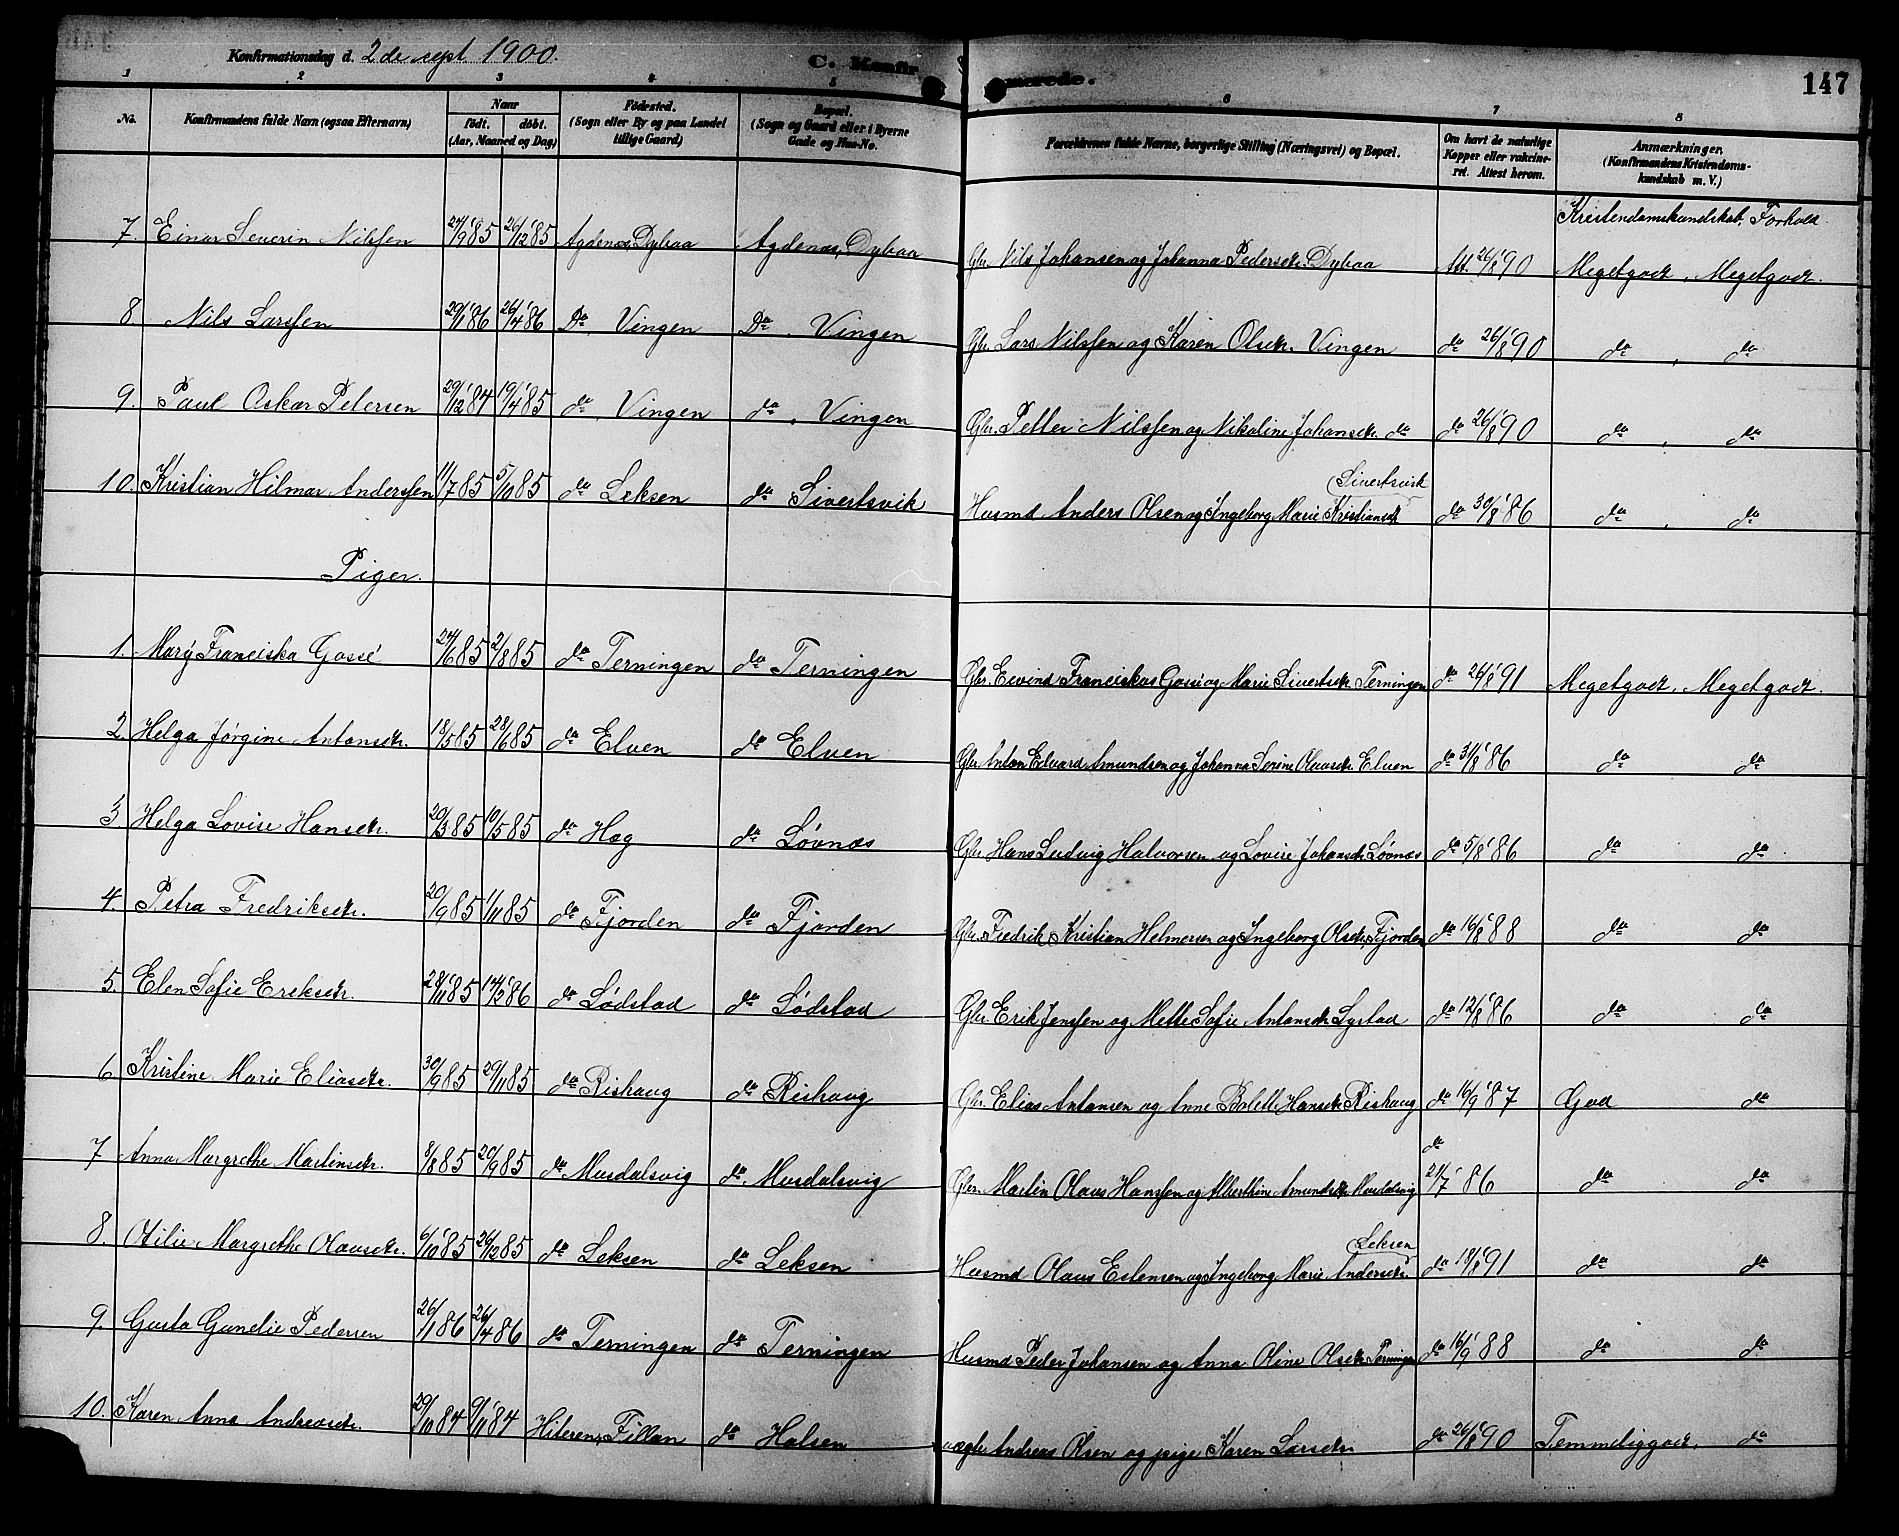 Konfirmationsdag d. 2 de sept 1900.
C. Konfirmerede.
147
1 2 3 4 5 6 7 8
No.
Konfirmandens fulde Navn (ogsaa Efternavn)
Naar
født. døbt.
(Aar, Maaned og Dag)
Fødested.
(Sogn eller By og paa Landet
tillige Gaard)
Bopæl.
(Sogn og Gaard eller i Byerne
Gade og Hus-No.
Forældrenes fulde Navne, borgerlige Stilling (Næringsvei) og Bopæl.
Om havt de naturlige
Kopper eller vakcine-
ret. Attest herom.
Anmærkninger.
(Konfirmandens Kristendoms-
kundskab m. V.)
Kristendomskundskab, Forhold.
7. Einar Severin Nilssen 27/9 85 26/12 85 Agdenæs, Dybaa Agdenæs, Dybaa Gbr. Nils Johansen og Johanna Pedersdtr. Dybaa Att. 26/8 90 Megetgodt, Megetgodt.
8. Nils Larssen 29/1 86 26/4 86 Do, Vingen Do, Vingen Gbr. Lars Nilssen og Karen Olsdtr. Vingen do 26/8 90 do, do
9. Paul Oskar Petersen 29/12 84 19/4 85 do, Vingen do, Vingen Gbr. Petter Nilssen og Nikoline Johansdtr. do do 26/8 90 do, do
Sivertsvik
10. Kristian Hilmar Anderssen 11/7 85 5/10 85 do Leksen do Sivertsvik Husmd Anders Olsen og Ingeborg Marie Kristiansdtr do 30/8 86 do, do
Piger.
1. Mary Franciska Gossé 24/6 85 2/8 85 do Terningen do Terningen Gbr. Eivind Franciskus Gossé og Marie Sivertsdtr. Terningen do 26/8 91 Megetgodt, Megetgodt.
2. Helga Jørgine Antonsdtr. 18/5 85 28/6 85 do Elven do Elven Gbr. Anton Edvard Amundsen og Johanna Serine Olausdtr. Elven do 31/8 86 do do
3 Helga Lovise Hansdtr. 20/3 85 10/5 85 do Hog do Løvnæs Gbr. Hans Ludvig Halvorsen og Lovise Johansdtr Løvnæs do 5/8 86 do do
4. Petra Fredriksdtr. 20/9 85 1/11 85 do Fjorden do Fjorden Gbr. Fredrik Kristian Helmersen og Ingeborg Olsdtr. Fjorden do 16/8 88 do do
5. Elen Sofie Eriksdtr. 28/11 85 14/2 86 do Lødstad do Lødstad Gbr. Erik Jenssen og Mette Sofie Antonsdtr Lystad do 12/8 86 do do
6 Kristine Marie Eliasdtr. 30/9 85 29/11 85 do Rishaug do Rishaug Gbr. Elias Antonsen og Anne Bolette Hansdtr Rishaug do 16/9 87 God do
7 Anna Margrethe Martinsdtr. 8/8 85 20/9 85 do Musdalsvig do Musdalsvig Gbr. Martin Olaus Hanssen og Alberthine Amundsdtr Musdalsvig do 21/7 86 do do
Leksen
8. Otilie Margrethe Olausdtr. 6/10 85 26/12 85 do Leksen do Leksen Husmd Olaus Estensen og Ingeborg Marie Andersdtr. do 18/8 91 do do
9. Gusta Gunelie Pedersen 26/1 86 26/4 86 do Terningen do Terningen Husmd Peder Johansen og Anna Oline Olsdtr Terningen do 16/9 88 do do
10. Karen Anna Andreasdtr. 29/10 84 9/11 84 Hiteren, Fillan do Halsen Andreas Olsen og pige Karen Larsdtr do 26/8 90 Temmeliggodt, do